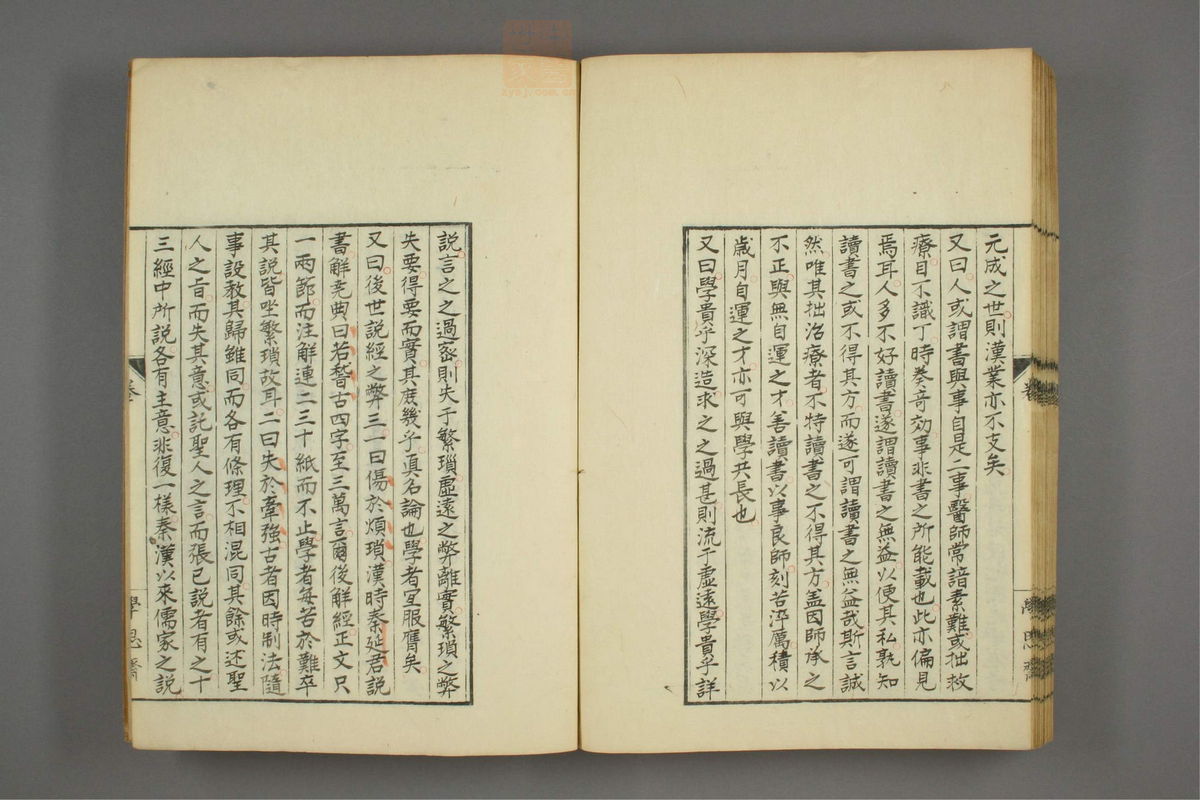 元成之世則漢業亦不支矣
又曰人或謂書與事自是二事醫師常諳素難或拙救
療目不識丁時奏奇効事非書之所能載也此亦偏見
焉耳人多不好讀書遂謂讀書之無益以便其私孰知
讀書之或不得其方而遂可謂讀書之無益哉斯言誠
然唯其拙治療者不特讀書之不得其方盖因師承之
不正與無自運之才善讀書以事良師刻苦淬厲積以
歲月自運之才亦可與學共長也
又曰學貴乎深造求之之過甚則流于虛遠學貴乎詳
說言之之過密則失于繁瑣虛遠之弊離實繁瑣之弊
失要得要而實其庶幾乎真名論也學者宜服膺矣
又曰後世説經之弊三一曰傷於煩瑣漢時秦延君説
書解堯典曰若稽古四字至三萬言爾後解經正文只
一兩節而注解連二三十紙而不止學者每苦於難卒
其説皆坐繁瑣故耳二曰失於牽強古者因時制法隨
事設教其歸雖同而各有條理不相混同其餘或述聖
人之旨而失其意或託聖人之言而張已説者有之十
三經中所説各有主意非復一樣秦漢以來儒家之説
學思齋